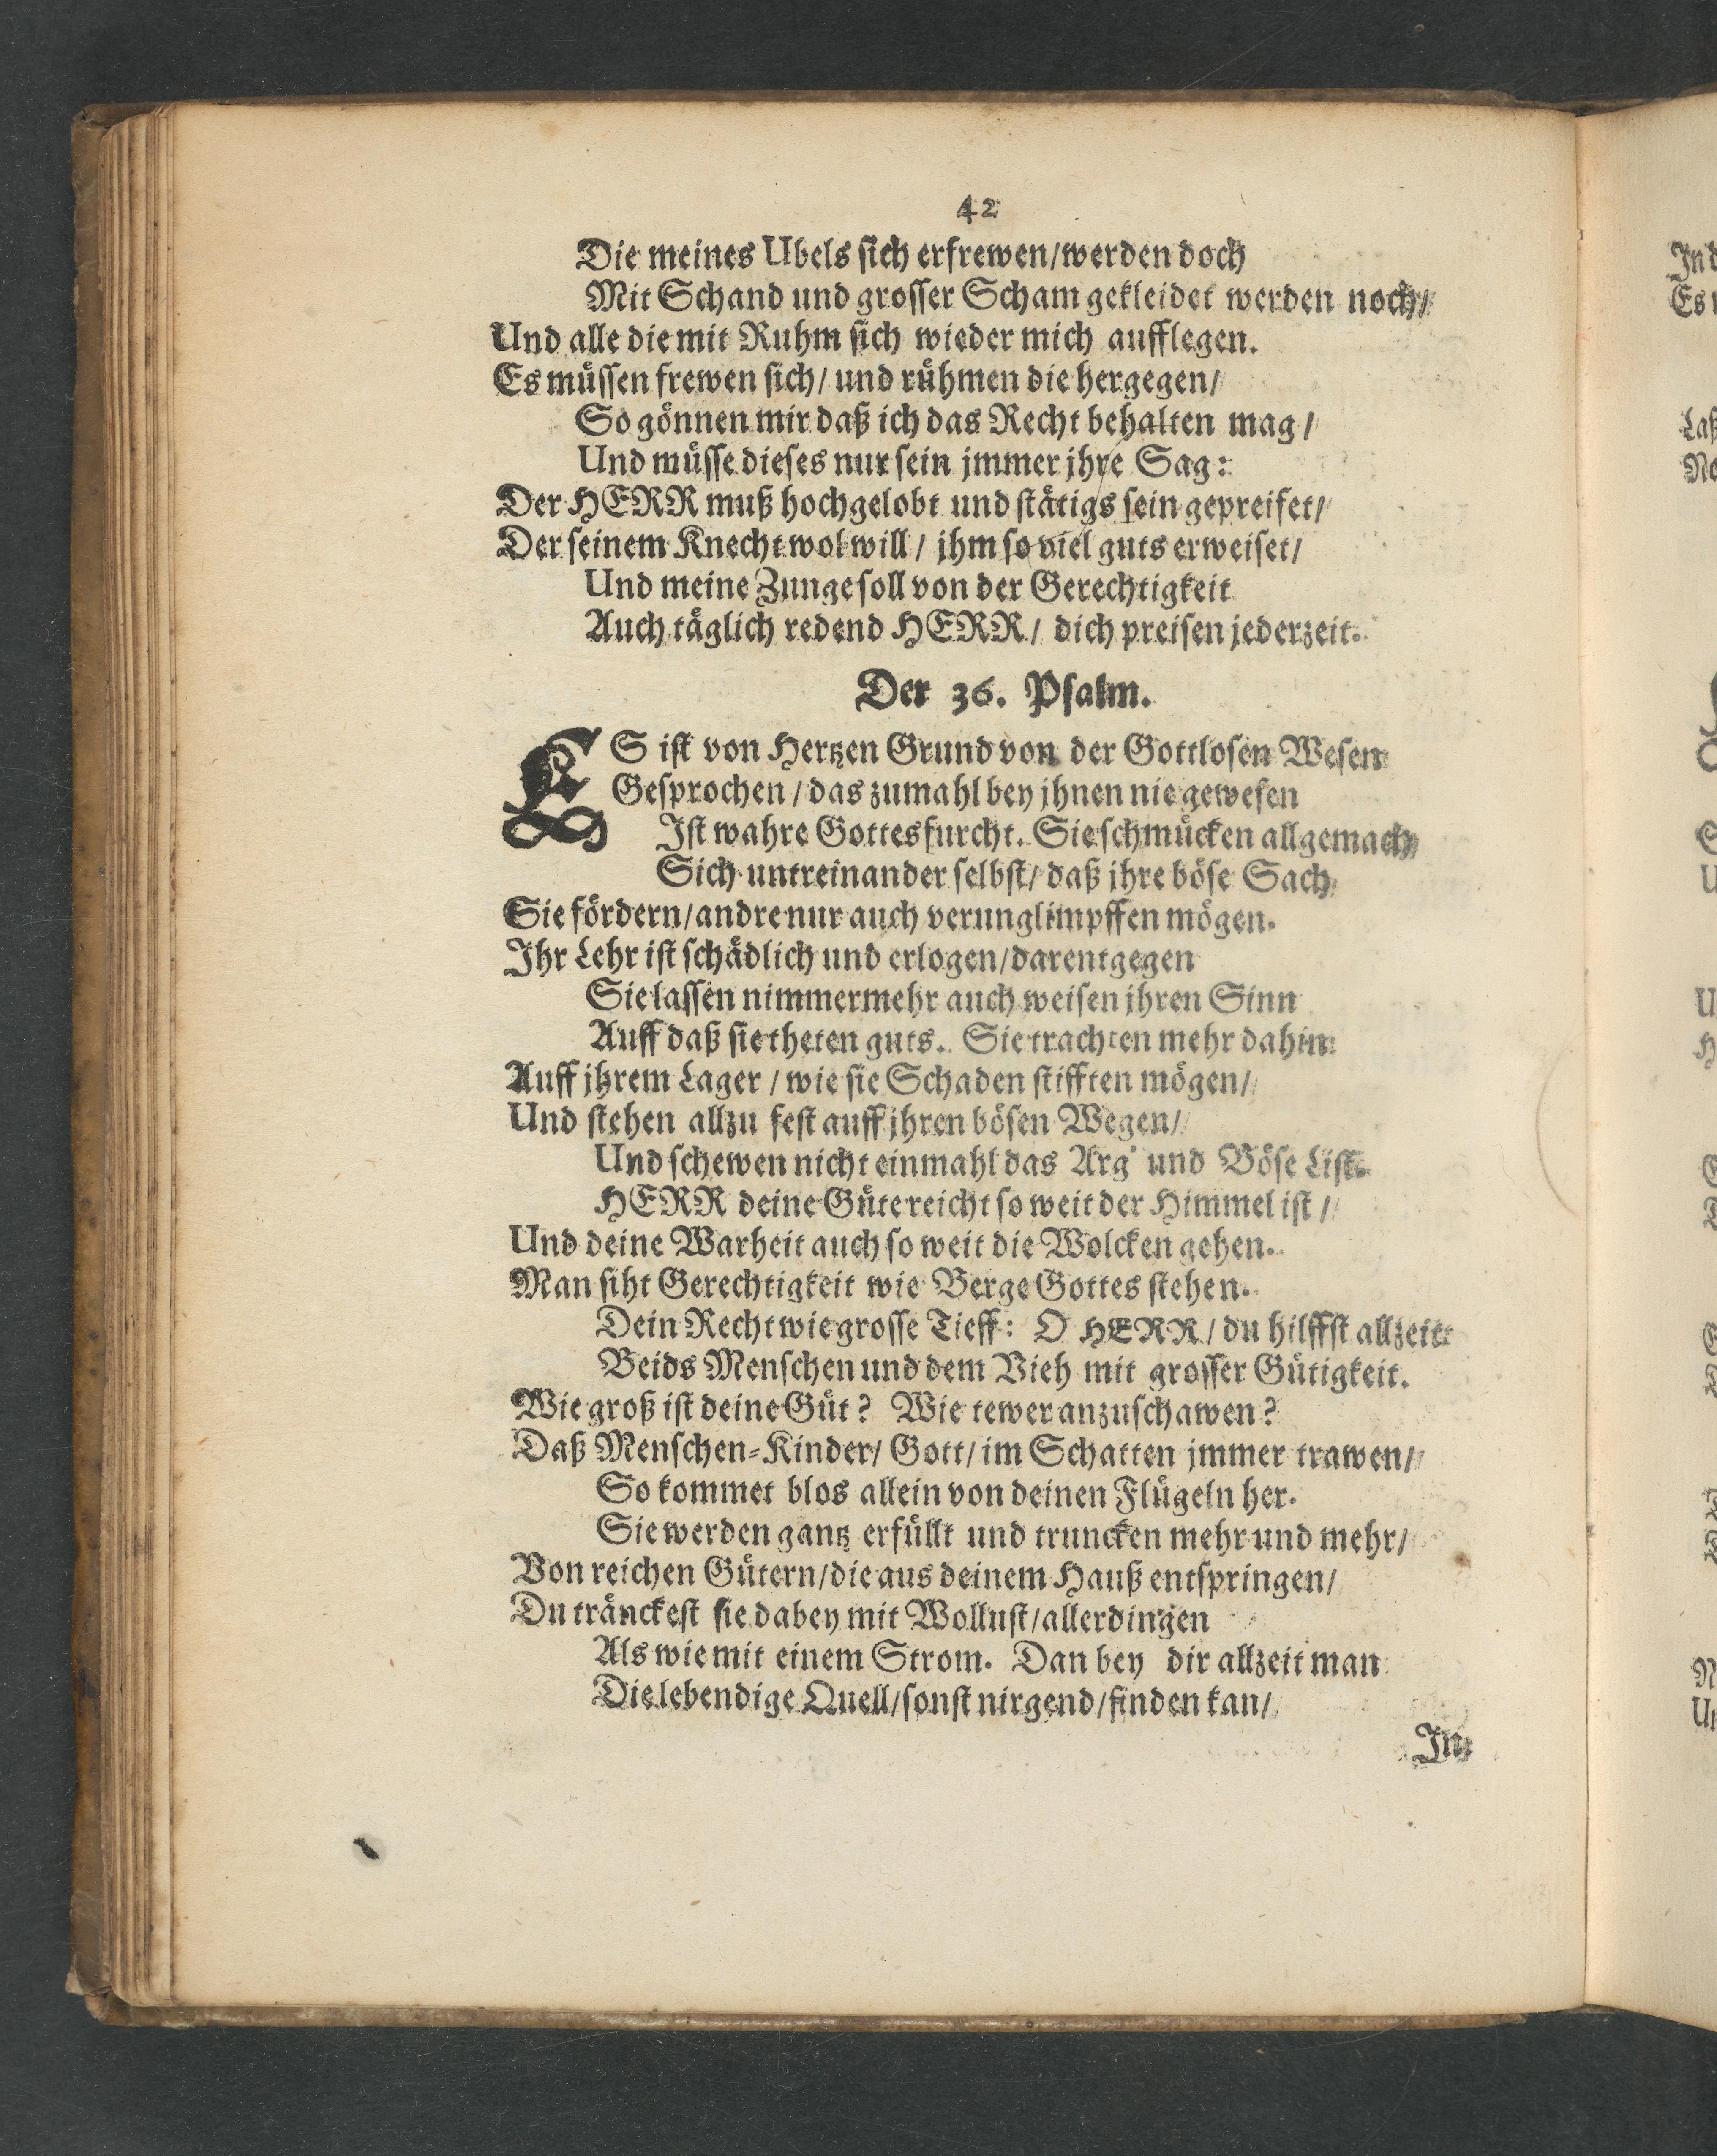 42
Die meines Ubels sich erfrewen/werden doch
Mit Schand und grosser Scham gekleidet werden noch/
Und alle die mit Ruhm sich wieder mich aufflegen.
Es müssen frewen sich/ und rühmen die hergegen/
So gönnen mir daß ich das Recht behalten mag/
Und müsse dieses nur sein jmmer jhre Sag:
Der HERR muß hochgelobt und stätigs sein gepreiset/
Der seinem Knecht wol will/ jhm so viel guts erweiset/
Und meine Zunge soll von der Gerechtigkeit
Auch täglich redend HERR/ dich preisen jederzeit.
Der 36. Psalm.
ES ist von Hertzen Grund von der Gottlosen Wesen
Gesprochen/das zumahl bey jhnen nie gewesen
Ist wahre Gottesfurcht. Sie schmücken allgemach
Sich untreinander selbst/ daß jhre böse Sach
Sie fördern/andre nur auch verunglimpffen mögen.
Ihr Lehr ist schädlich und erlogen/darentgegen
Sie lassen nimmermehr auch weisen jhren Sinn
Auff daß sie theten guts. Sie trachten mehr dahin
Auff jhrem Lager/wie sie Schaden stifften mögen/
Und stehen allzu fest auff jhren bösen Wegen/
Und schewen nicht einmahl das Arg' und Böse List.
HERR deine Güte reicht so weit der Himmel ist/
Und deine Warheit auch so weit die Wolcken gehen.
Man siht Gerechtigkeit wie Berge Gottes stehen.
Dein Recht wie grosse Tieff: O HERR/du hilffst allzeit
Beids Menschen und dem Vieh mit grosser Gütigkeit.
Wie groß ist deine Güt? Wie tewer anzuschawen?
Daß Menschen-Kinder/ Gott/im Schatten jmmer trawen/
So kommet blos allein von deinen Flügeln her.
Sie werden gantz erfüllt und truncken mehr und mehr/
Von reichen Gütern/die aus deinem Hauß entspringen/
Du tränckest sie dabey mit Wollust/allerdingen
Als wie mit einem Strom. Dan bey dir allzeit man
Die lebendige Quell/sonst nirgend/finden kan/
In